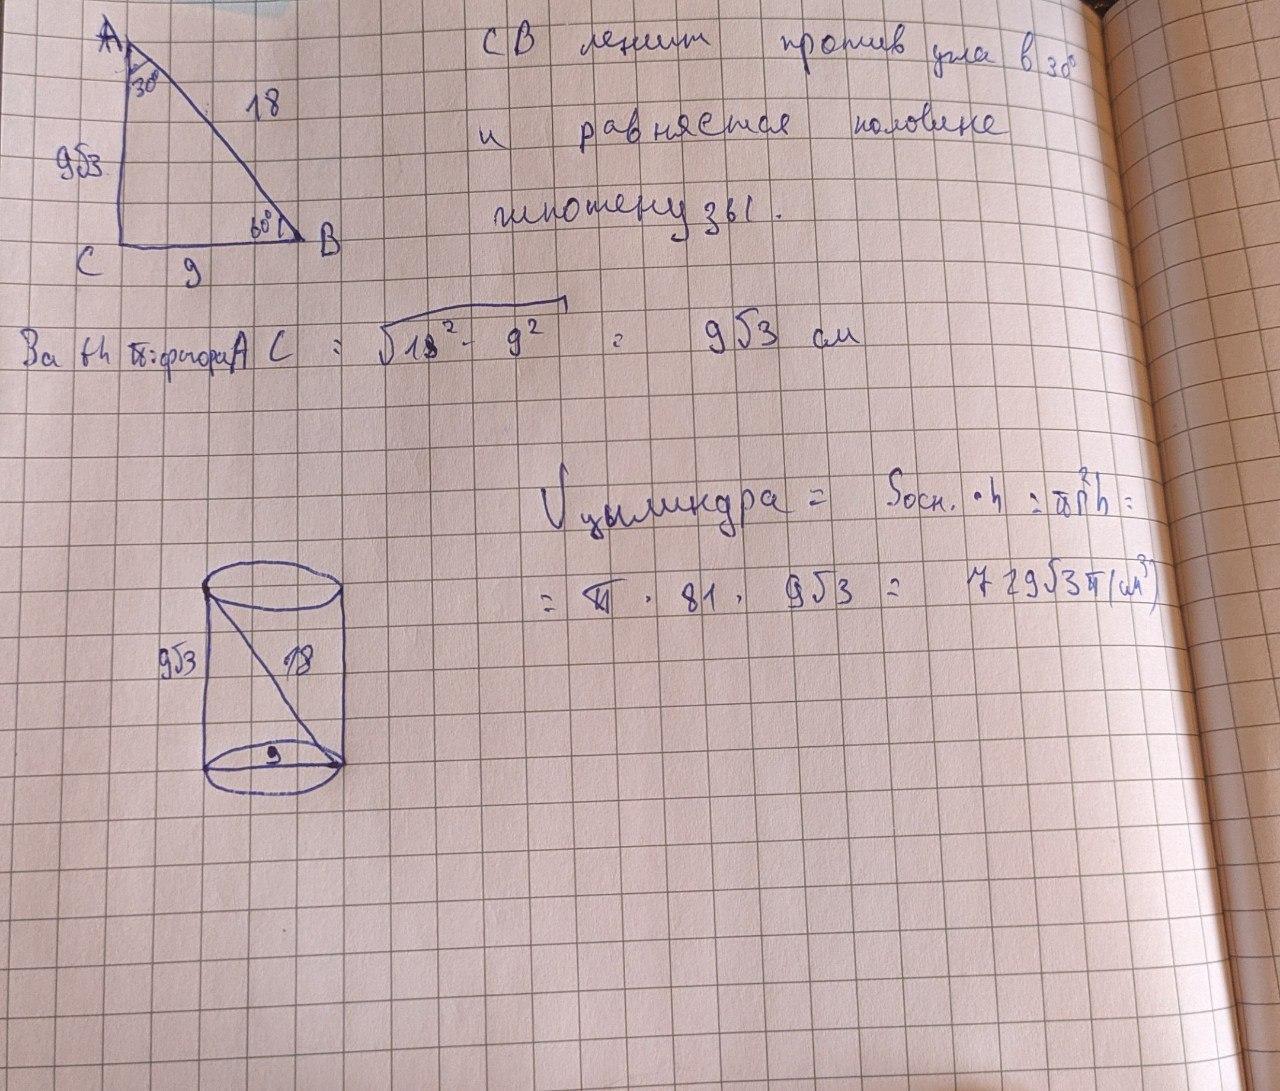 A
30°
18
9√3
60°
C
9
B
CB лежит против угла в 30°
и равняется половине
гипотенузы.
За th Піфагора AC = √18² - 9² = 9√3 см
Vцылиндра = Sосн. · h = πr²h =
= π · 81 · 9√3 = 729√3π (см³)
9√3
18
9